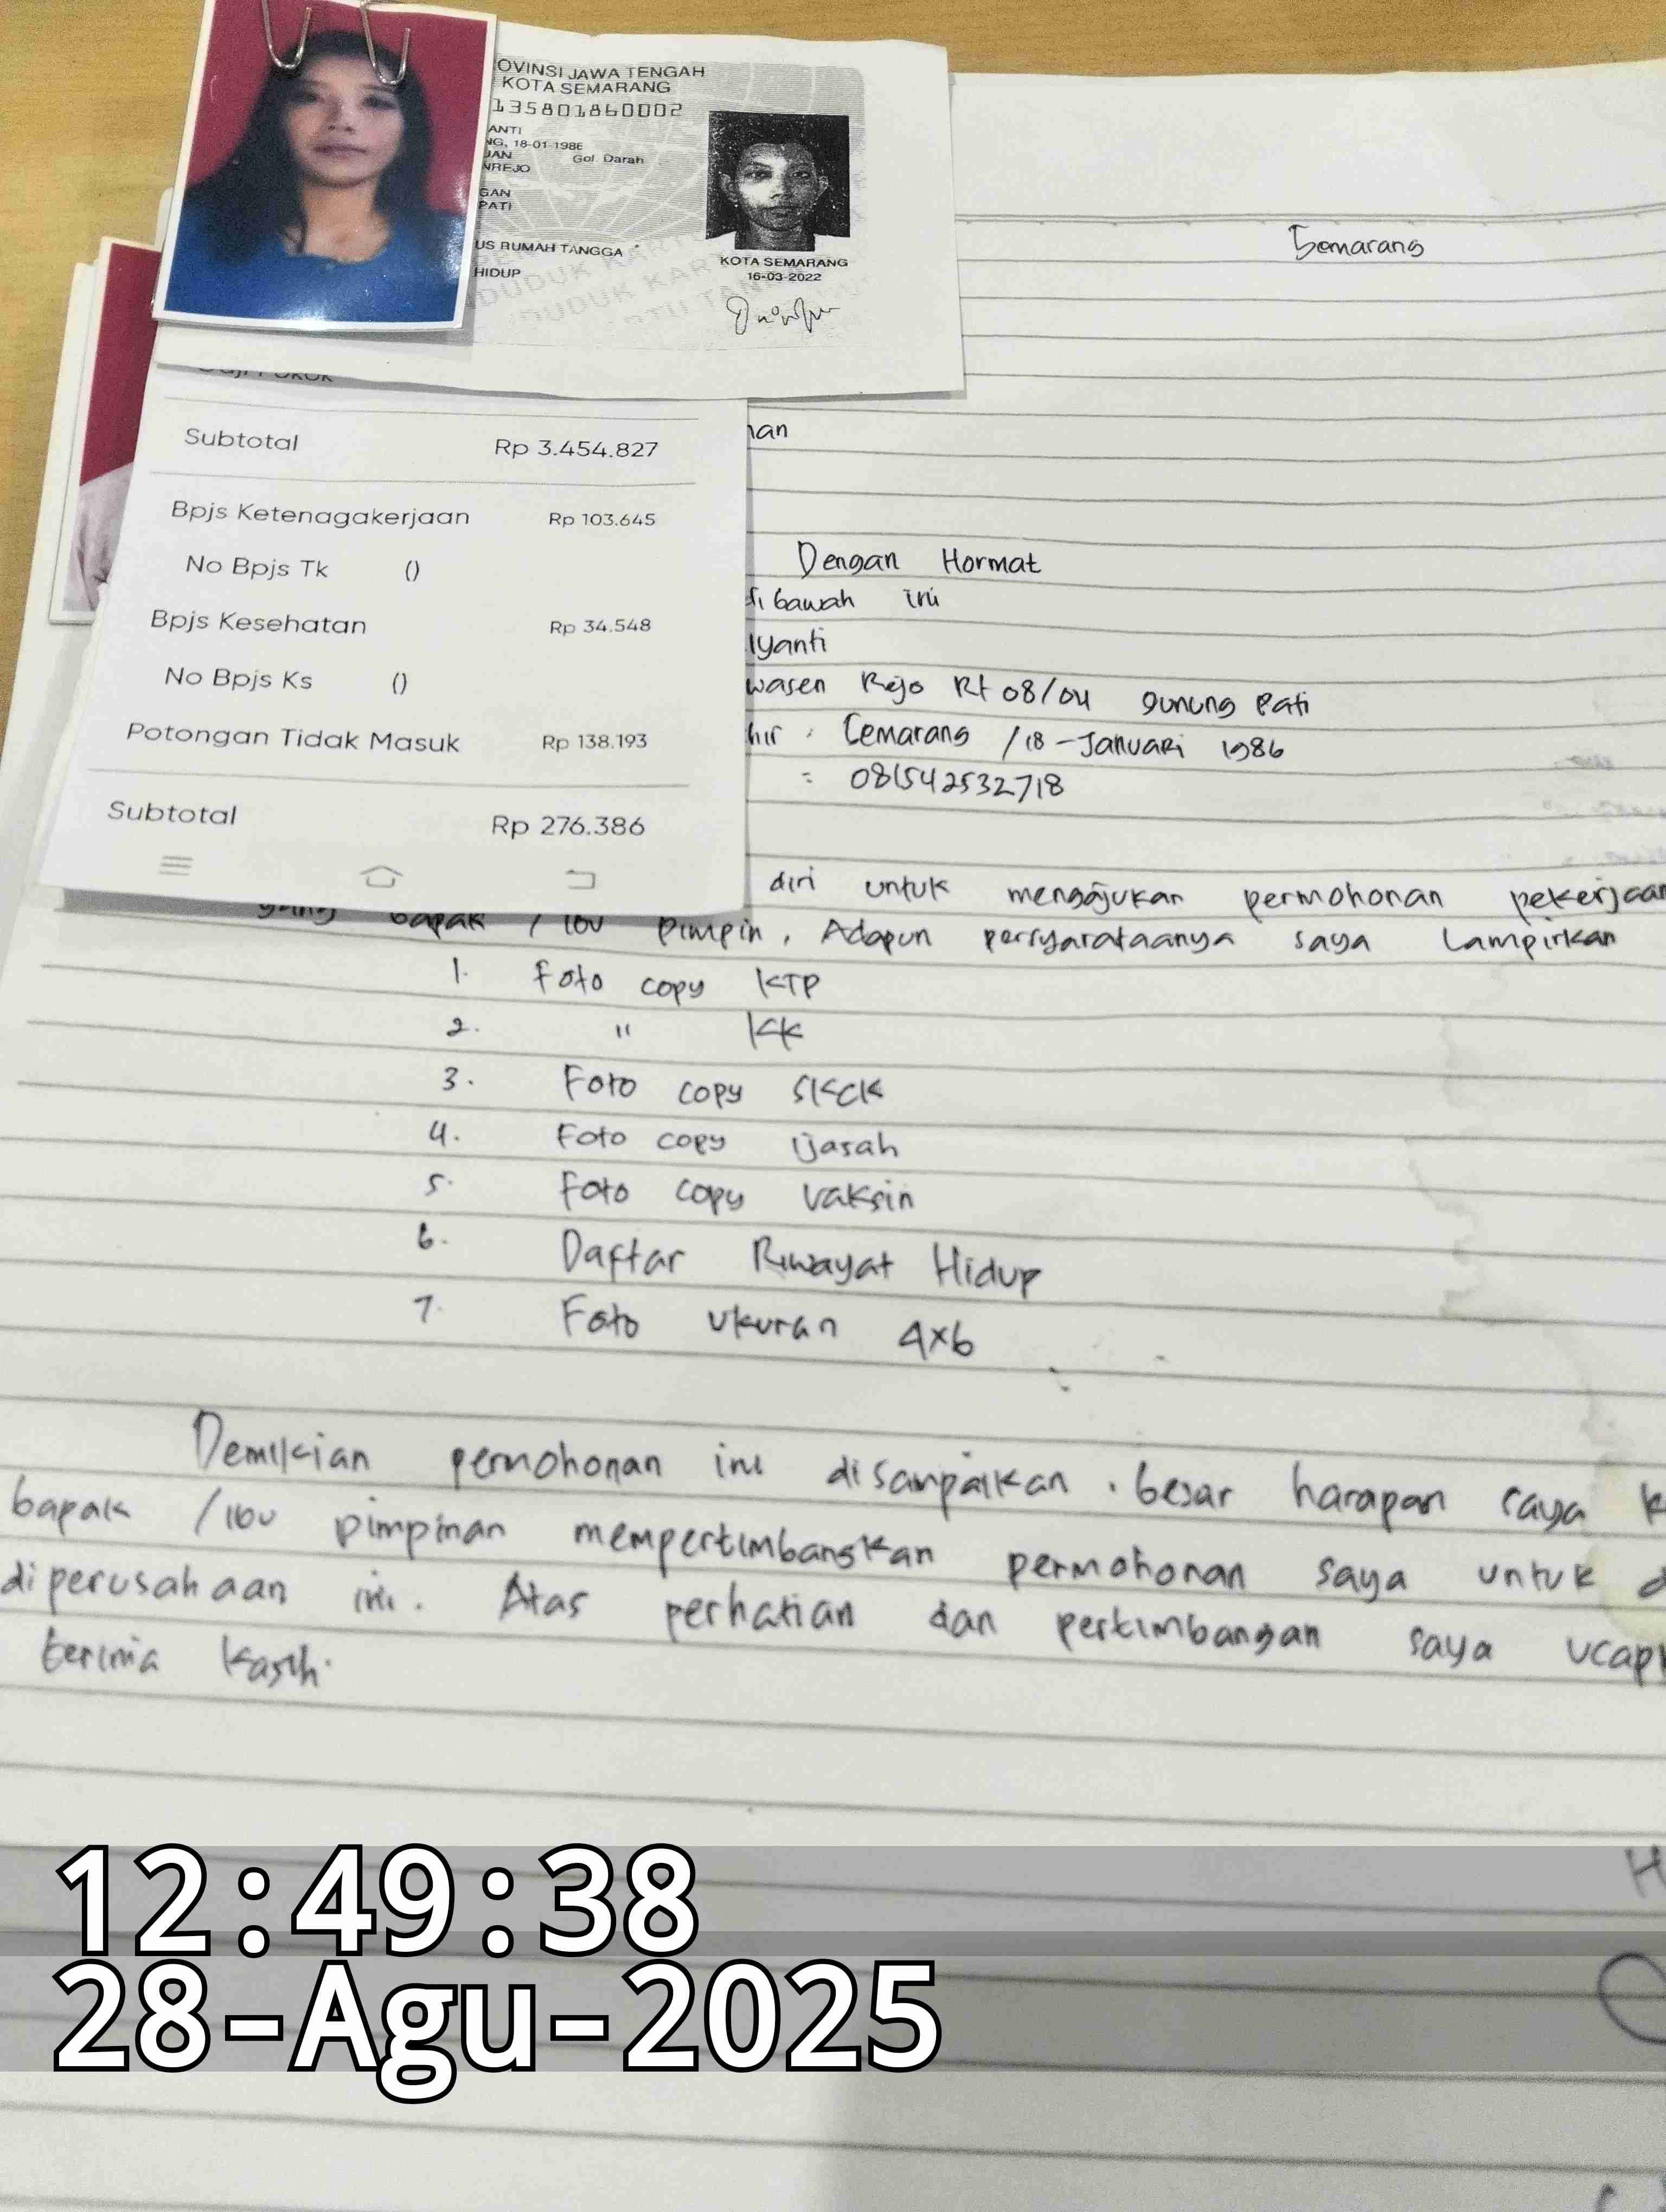 OVINSI JAWA TENGAH
KOTA SEMARANG
135801860002
ANTI
NG, 18-01-1986
UAN Gol. Darah
NREJO
GAN
PATI
US RUMAH TANGGA
HIDUP
KOTA SEMARANG
16-03-2022
Semarang
Subtotal Rp 3.454.827
Bpjs Ketenagakerjaan Rp 103.645
No Bpjs Tk ()
Bpjs Kesehatan Rp 34.548
No Bpjs Ks ()
Potongan Tidak Masuk Rp 138.193
Subtotal Rp 276.386
han
Dengan Hormat
dibawah ini
lyanti
wasen Rejo Rt 08/04 gunung Pati
hir : Semarang / 18 - Januari 1986
= 081542532718
diri untuk mengajukan permohonan pekerjaan
yang bapak / ibu pimpin, Adapun persyarataanya saya Lampirkan
1. Foto copy KTP
2. " KK
3. Foto copy SKCK
4. Foto copy ijasah
5. Foto copy vaksin
6. Daftar Riwayat Hidup
7. Foto ukuran 4x6
Demikian permohonan ini disampaikan. besar harapan saya k
bapak / ibu pimpinan mempertimbangkan permohonan saya untuk d
diperusahaan ini. Atas perhatian dan pertimbangan saya ucap
terima kasih.
H
12:49:38
28-Agu-2025